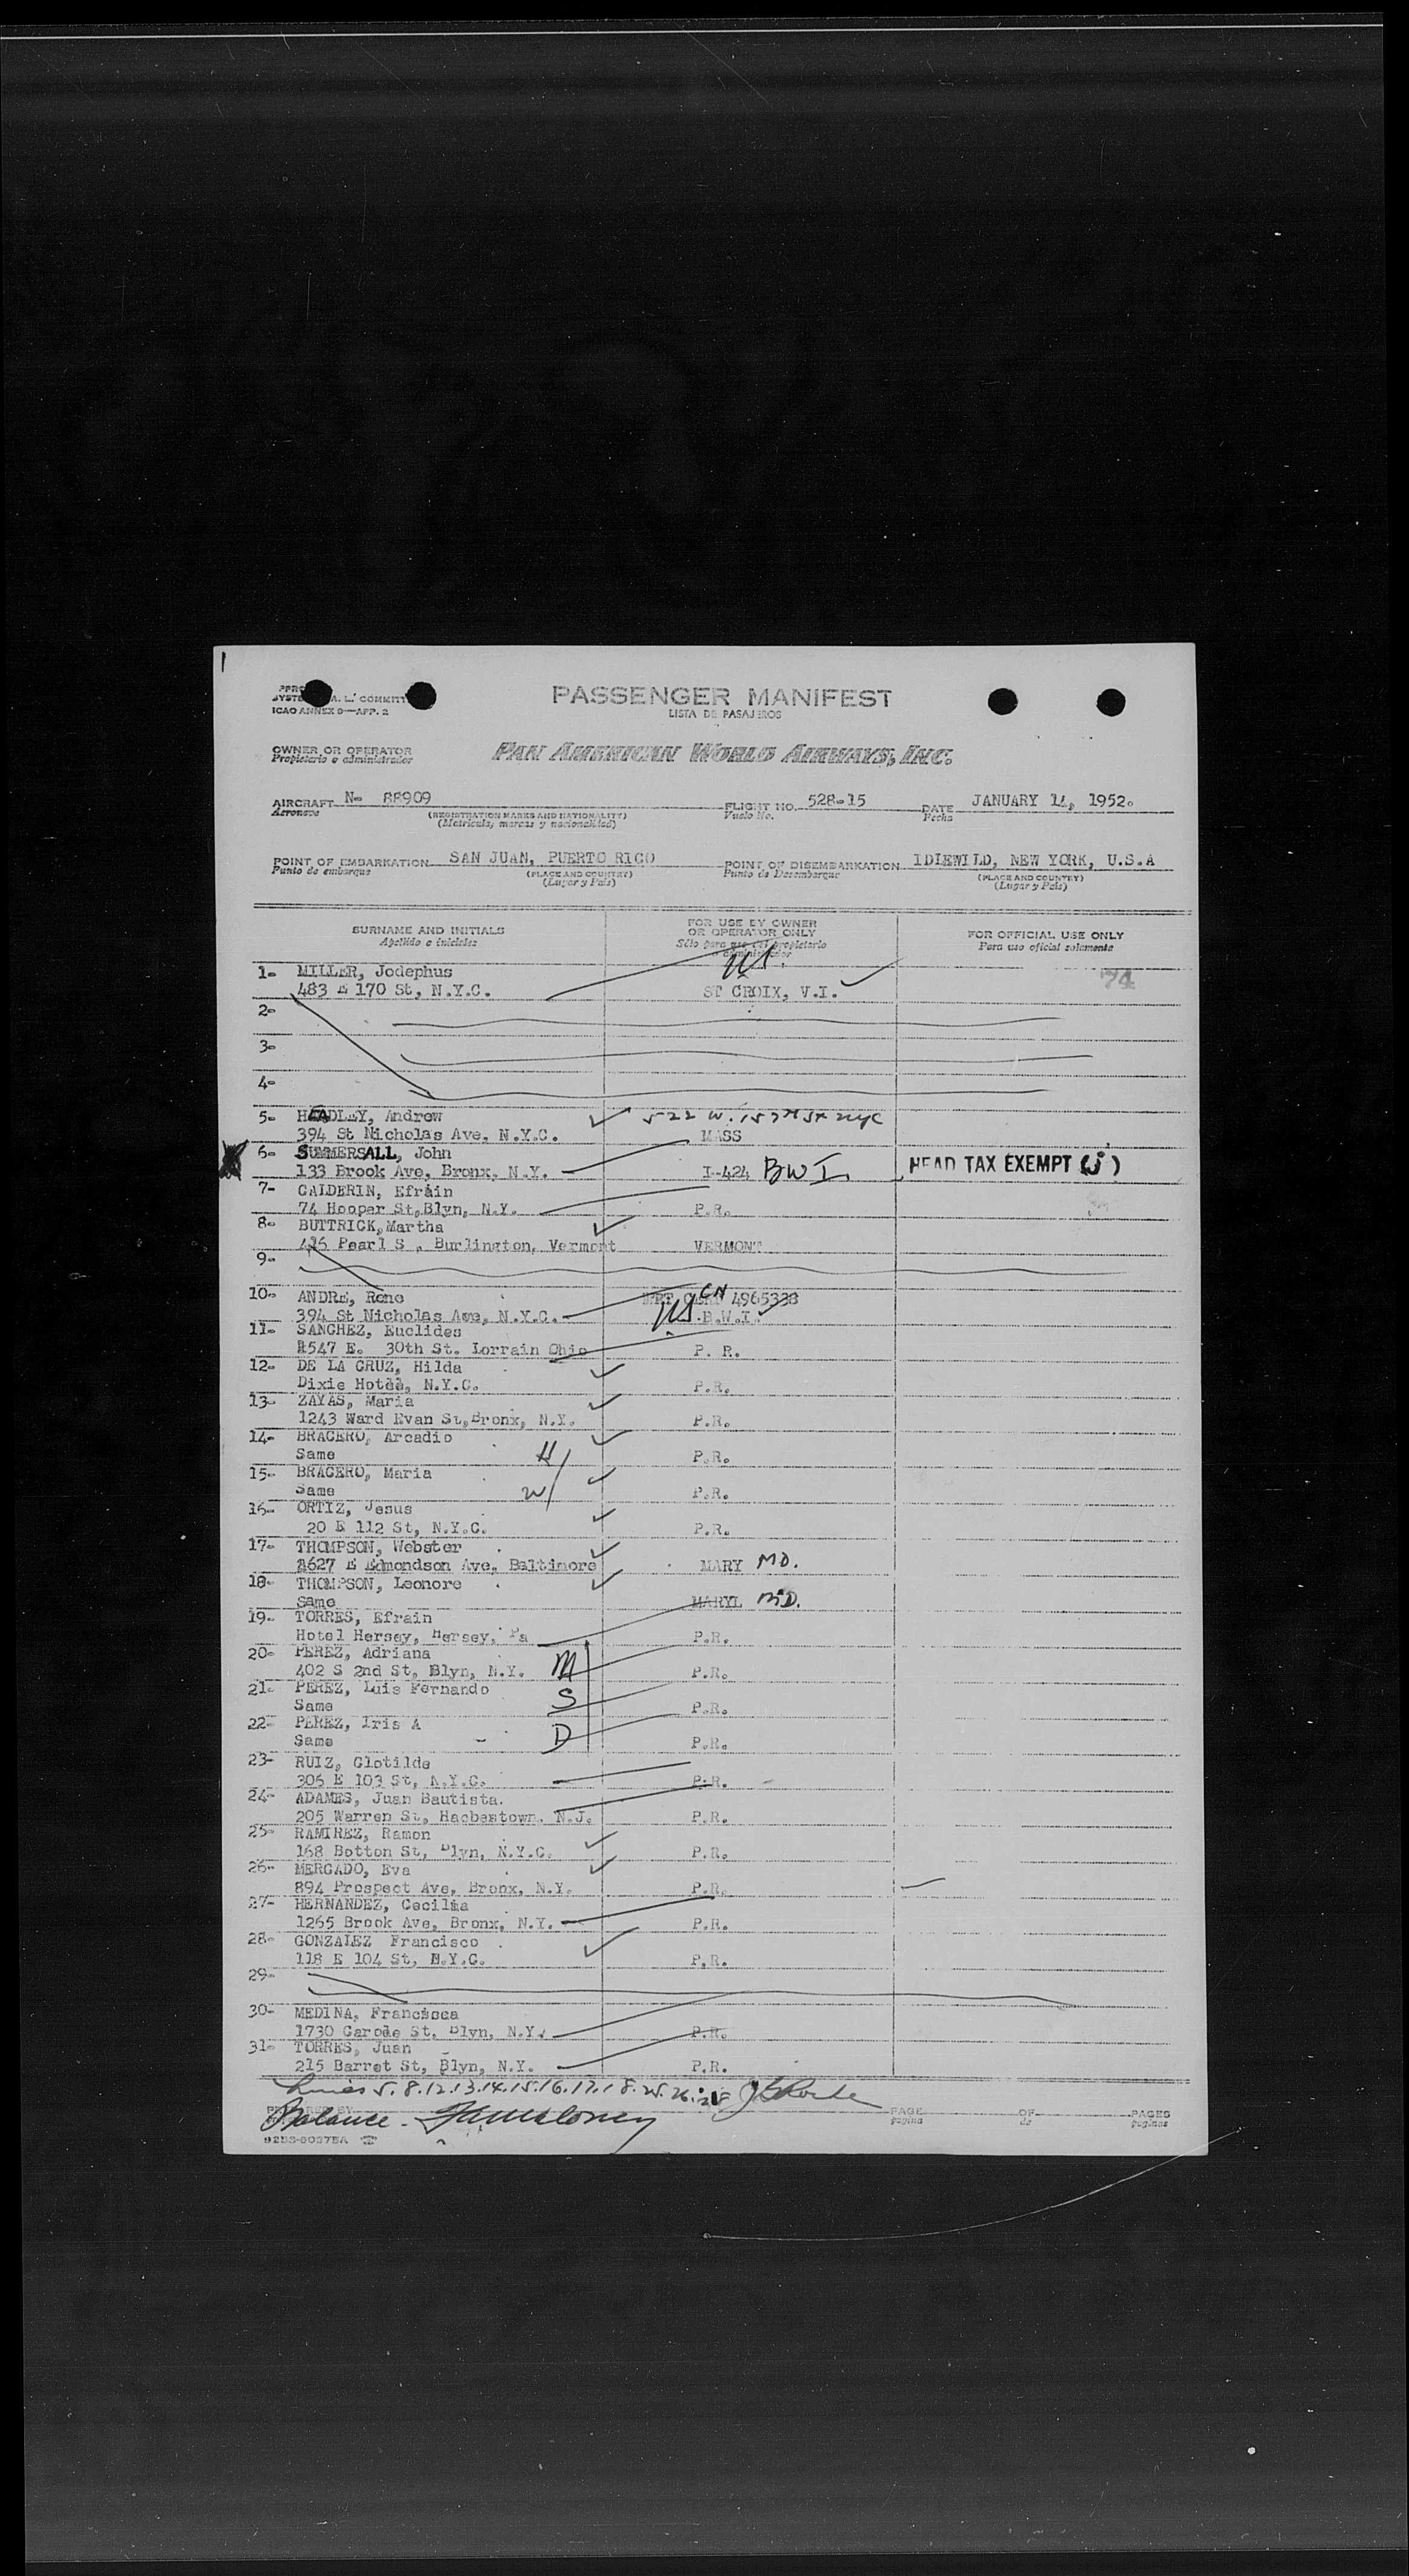 PASSENGER MANIFEST
A. L. COMMITT
LISTA DE PASAJEROS
ICAO ANNEX 9—APP. 2
OWNER OR OPERATOR
Propietario o administrador
PAN AMERICAN WORLD AIRWAYS, INC.
AIRCRAFT N- 88909 FLIGHT NO. 528-15 DATE JANUARY 14, 1952.
Aeronave (REGISTRATION MARKS AND NATIONALITY) Vuelo No. Fecha
(Matricula, marcas y nacionalidad)
POINT OF EMBARKATION SAN JUAN, PUERTO RICO POINT OF DISEMBARKATION IDLEWILD, NEW YORK, U.S.A
Punto de embarque (PLACE AND COUNTRY) Punto de Desembarque (PLACE AND COUNTRY)
(Lugar y Pais) (Lugar y Pais)
SURNAME AND INITIALS FOR USE BY OWNER OR OPERATOR ONLY FOR OFFICIAL USE ONLY
Apellido e iniciales Sólo para uso del propietario o administrador Para uso oficial solamente
1- MILLER, Jodephus US.
483 E 170 St, N.Y.C. ST CROIX, V.I. 74
2-
3-
4-
5- HEADLEY, Andrew 522 W. 157th St NYC
394 St Nicholas Ave, N.Y.C. MASS
6- SUMMERSALL, John
133 Brook Ave, Bronx, N.Y. I-424 BWI. HEAD TAX EXEMPT (J)
7- CALDERIN, Efrain
74 Hooper St,Blyn, N.Y. P.R.
8- BUTTRICK,Martha
416 Pearl S , Burlington, Vermont VERMONT
9-
10- ANDRE, Rene CN 4965338
394 St Nicholas Ave, N.Y.C. US. B.W.I.
11- SANCHEZ, Euclides
1547 E. 30th St. Lorrain Ohio P. R.
12- DE LA CRUZ, Hilda
Dixie Hotel, N.Y.C. P.R.
13- ZAYAS, Maria
1243 Ward Evan St,Bronx, N.Y. P.R.
14- BRACERO, Arcadio
Same H P.R.
15- BRACERO, Maria
Same W P.R.
16- ORTIZ, Jesus
20 E 112 St, N.Y.C. P.R.
17- THOMPSON, Webster
2627 E Edmondson Ave, Baltimore MARY MD.
18- THOMPSON, Leonore
Same MARYL MD.
19- TORRES, Efrain
Hotel Hersey, Hersey, Pa P.R.
20- PEREZ, Adriana
402 S 2nd St, Blyn, N.Y. M P.R.
21- PEREZ, Luis Fernando
Same S P.R.
22- PEREZ, Iris A
Same D P.R.
23- RUIZ, Clotilde
306 E 103 St, N.Y.C. P.R.
24- ADAMES, Juan Bautista.
205 Warren St, Hacbestown, N.J. P.R.
25- RAMIREZ, Ramon
168 Botton St, Blyn, N.Y.C. P.R.
26- MERCADO, Eva
894 Prospect Ave, Bronx, N.Y. P.R.
27- HERNANDEZ, Cecilia
1265 Brook Ave, Bronx, N.Y. P.R.
28- GONZALEZ Francisco
118 E 104 St, N.Y.C. P.R.
29-
30- MEDINA, Francisca
1730 Carode St, Blyn, N.Y. P.R.
31- TORRES, Juan
215 Barret St, Blyn, N.Y. P.R.
Lines 5.8.12.13.14.15.16.17.18.25.26.28
Balance - PAGE OF PAGES
página de páginas